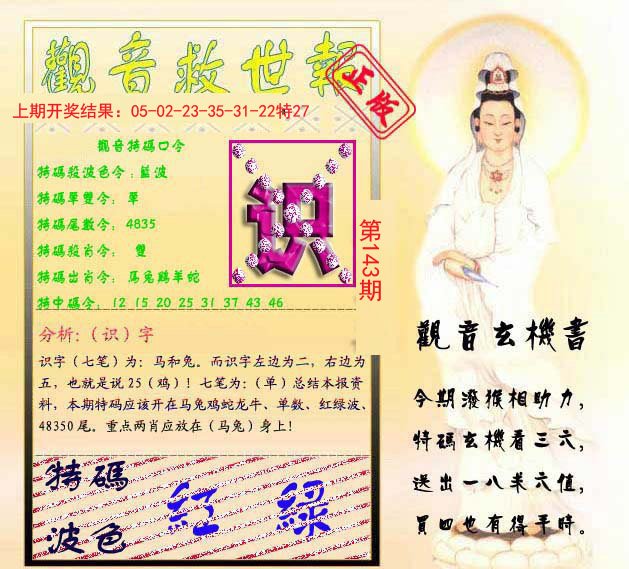 觀音救世報
正版
上期开奖结果：05-02-23-35-31-22特27
觀音特碼口令
特碼殺波色令：藍波
特碼單雙令： 單
特碼尾數令： 4835
特碼殺肖令： 雙
特碼出肖令： 馬兔鷄羊蛇
特中碼令： 12 15 20 25 31 37 43 46
识
第143期
分析:（识）字
识字（七笔）为：马和兔。而识字左边为二，右边为
五，也就是说 25（鸡）！七笔为:（单）总结本报资
料，本期特码应该开在马兔鸡蛇龙牛、单数、红绿波、
48350 尾。重点两肖应放在（马兔）身上！
特碼
波色
紅 綠
觀音玄機書
今期潑猴相助力，
特碼玄機看三六，
送出一八求六值，
買四也有得平時。